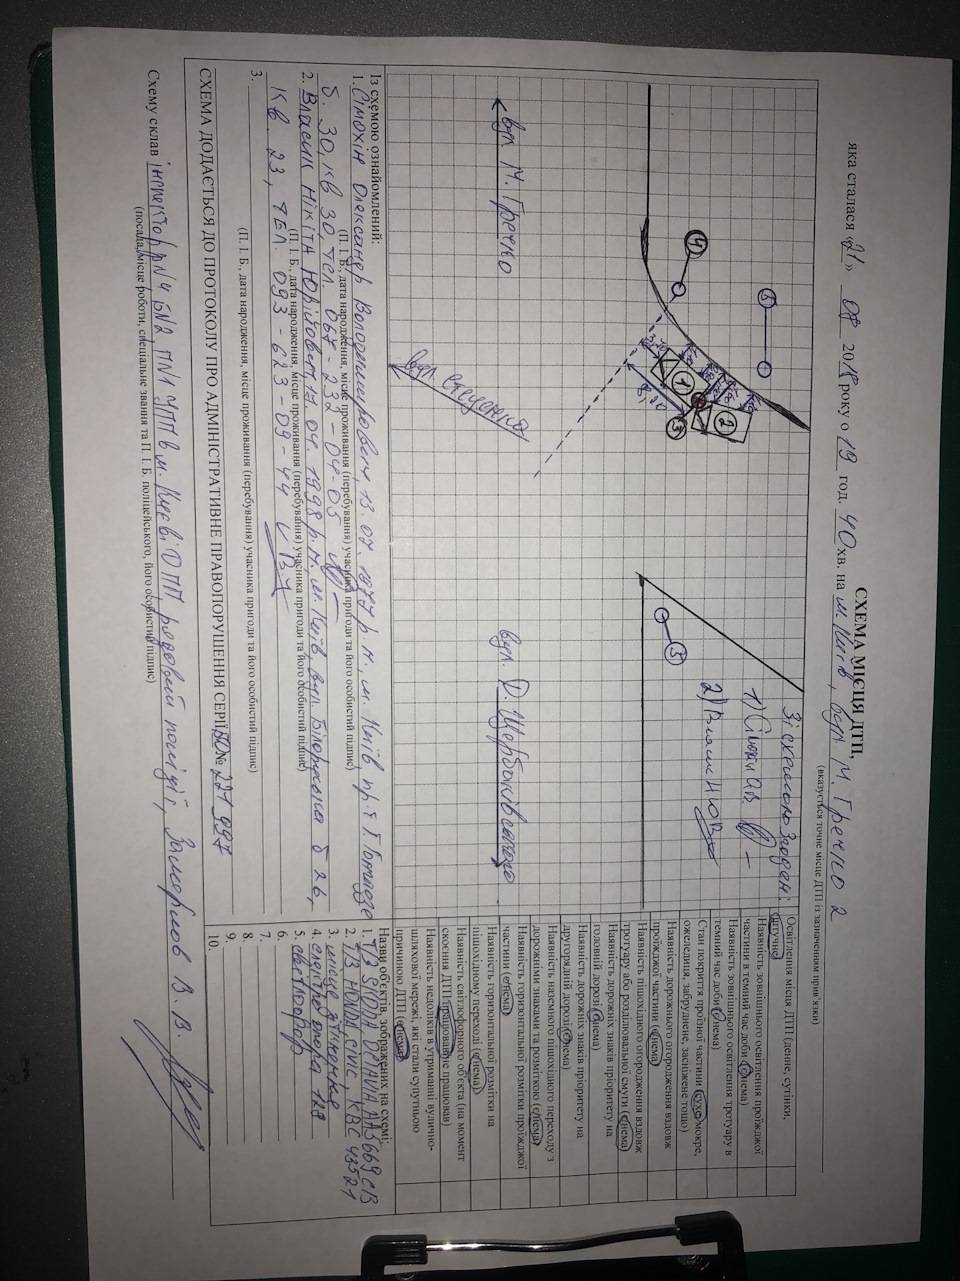 СХЕМА МІСЦЯ ДТП,
яка сталася «21» 08 2018 року о 19 год. 40 хв. на м. Київ, вул. М. Гречко 2
(вказується точне місце ДТП із зазначенням прив'язки)
Зі схемою згоден:
1) Сімохін О.В.
2) Власик Н.Ю.
вул. М. Гречко
вул. Стеценка
вул. Д. Щербаківського
1
2
3
4
5
3
8,00
Освітлення місця ДТП (денне, сутінки, штучне)
Наявність зовнішнього освітлення проїжджої частини в темний час доби (є/нема)
Наявність зовнішнього освітлення тротуару в темний час доби (є/нема)
Стан покриття проїзної частини (сухе, мокре, ожеледиця, забруднене, засніжене тощо)
Наявність дорожнього огородження вздовж проїжджої частини (є/нема)
Наявність пішохідного огородження вздовж тротуару або розділювальної смуги (є/нема)
Наявність дорожніх знаків пріоритету на головній дорозі (є/нема)
Наявність дорожніх знаків пріоритету на другорядній дорозі (є/нема)
Наявність наземного пішохідного переходу з дорожніми знаками та розміткою (є/нема)
Наявність горизонтальної розмітки проїжджої частини (є/нема)
Наявність горизонтальної розмітки на пішохідному переході (є/нема)
Наявність світлофорного об'єкта (на момент скоєння ДТП працював/не працював)
Наявність недоліків в утриманні вулично-шляхової мережі, які стали супутньою причиною ДТП (є/нема)
Із схемою ознайомлений:
1. Сімохін Олександр Володимирович, 13.07.1977 р.н., м. Київ, пр-т Г. Гонгадзе
(П. І. Б., дата народження, місце проживання (перебування) учасника пригоди та його особистий підпис)
б. 30, кв 30, тел. 067-232-04-05
2. Власик Нікіта Юрійович, 17.04.1998 р.н., м. Київ, вул. Білоруська б 26,
(П. І. Б., дата народження, місце проживання (перебування) учасника пригоди та його особистий підпис)
кв. 23, тел. 093-623-09-44
3.
(П. І. Б., дата народження, місце проживання (перебування) учасника пригоди та його особистий підпис)
Назви об'єктів, зображених на схемі:
1. Т/З SKODA OCTAVIA AA5669CB
2. Т/З HONDA CIVIC, KBC 43521
3. місце зіткнення
4. електроопора 128
5. світлофор
6.
7.
8.
9.
10.
СХЕМА ДОДАЄТЬСЯ ДО ПРОТОКОЛУ ПРО АДМІНІСТРАТИВНЕ ПРАВОПОРУШЕННЯ СЕРІЇ БО № 221997
Схему склав інспектор р№4 Б№2 П№1 УПП в м. Києві ДПП, рядовий поліції,
(посада, місце роботи, спеціальне звання та П. І. Б. поліцейського, його особистий підпис)